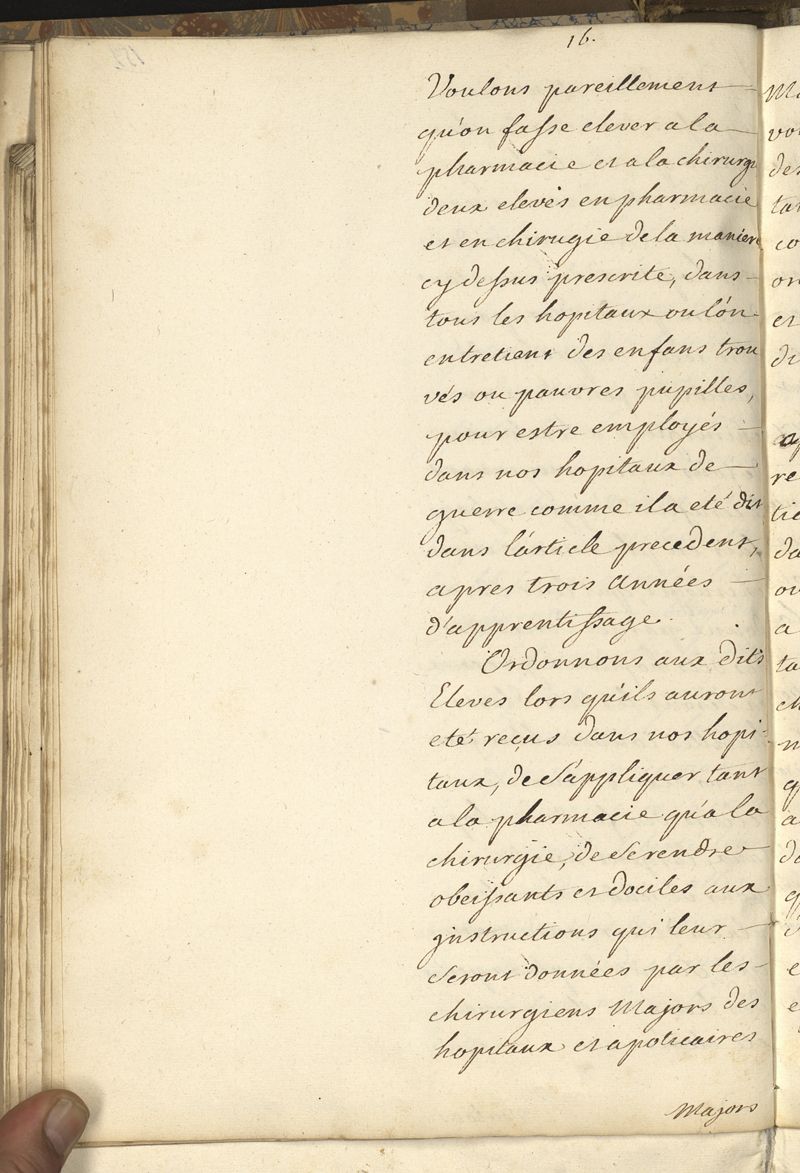 16.
Voulons pareillement
qu'on fasse elever a la
pharmacie et a la chirurgi
deux elevés en pharmacie
et en chirugie de la maniere
cy dessus prescrite, dans
tous les hopitaux ou l'on
entretient des enfans trou
vés ou pauvres pupilles,
pour estre employés
dans nos hopitaux de
guerre comme il a eté dit
dans l'article precedent,
apres trois années
d'apprentissage.
Ordonnons aux dits
Eleves lors qu'ils auront
eté reçus dans nos hopi-
taux, de s'appliquer tant
a la pharmacie qu'a la
chirurgie, de se rendre
obeissants et dociles aux
jnstructions qui leur
seront données par les
chirurgiens Majors des
hopitaux et apoticaires
Majors